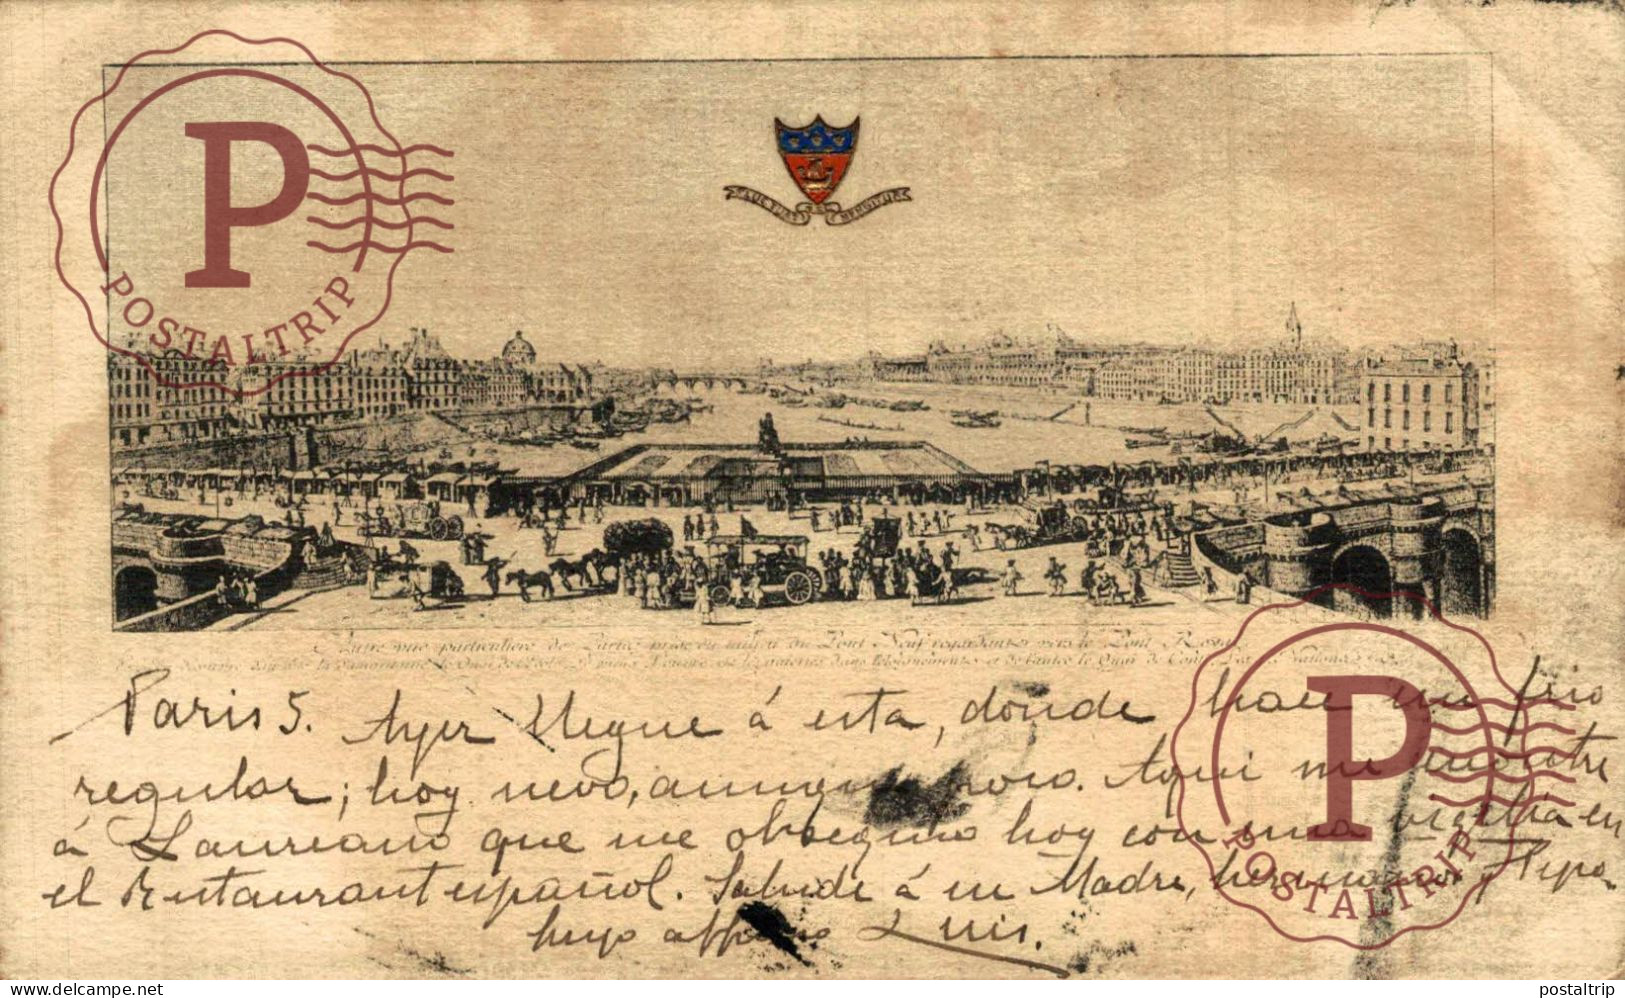 FLUCTUAT NEC MERGITUR
P
POSTALTRIP
Autre vue particuliere de Paris prise du milieu du Pont Neuf regardante vers le Pont Royal
Paris 5. Ayer llegue á esta, donde hace un frio
regular; hoy nevo, aunque poco. Aqui me encontre
á Laureano que me obsequio hoy con una en
el Restaurant español. Salude á su Madre, hermanas, Pepa.
suyo Luis.
P
POSTALTRIP
delcampe.net
postaltrip